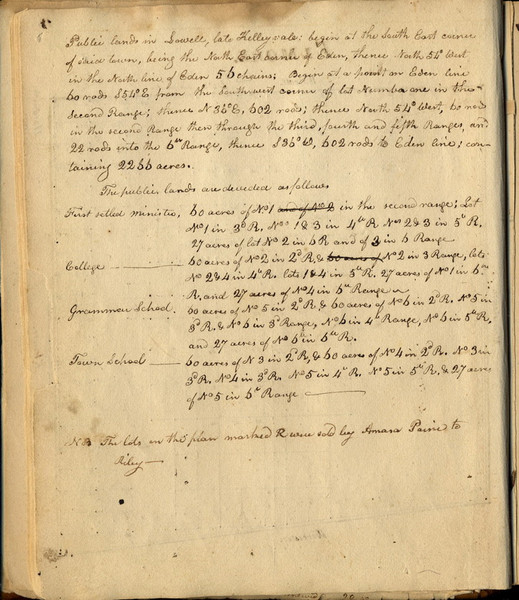 Public lands in Lowell, late Kelleyvale: begin at the South East corner
of said town, being the North East corner of Eden, thence North 54° West
in the North line of Eden 56 chains; Begin at a point on Eden line
60 rods S54°E from the South west corner of lot Number one in the
Second Range; thence N36°E, 602 rods; thence North 54° West, to rods
in the second Range then through the third, fourth and fifth Ranges, and
22 rods into the 6th Range, thence S36°W, 602 rods to Eden line; con-
taining 2266 acres.
The public lands are devided as follows
First settled ministre, 60 acres of No 1 and of No 2 in the second range; Lot
No 1 in 3d R. Nos 1 & 3 in 4th R Nos 2 & 3 in 5th R.
27 acres of lot No 2 in 6 R and of 3 in 6 Range
College 60 acres of No 2 in 2d R, & 60 acres of No 2 in 3 Range, lots
No 2 & 4 in 4th R. lots 1 & 4 in 5th R. 27 acres of No 1 in 6th
R, and 27 acres of No 4 in 6th Range
Grammar School. 60 acres of No 5 in 2d R. & 60 acres of No 6 in 2d R. No 5 in
3d R. & No 6 in 3d Range, No 6 in 4th Range, No 6 in 5th R,
and 27 acres of No 6 in 6th R.
Town School 60 acres of N 3 in 2d R, & 60 acres of No 4 in 2d R. No 3 in
3d R. No 4 in 3d R. No 5 in 4th R. No 5 in 5th R. & 27 acres
of No 5 in 6th Range
NB The lots on the plan marked R were sold by Amasa Paine to
Riley